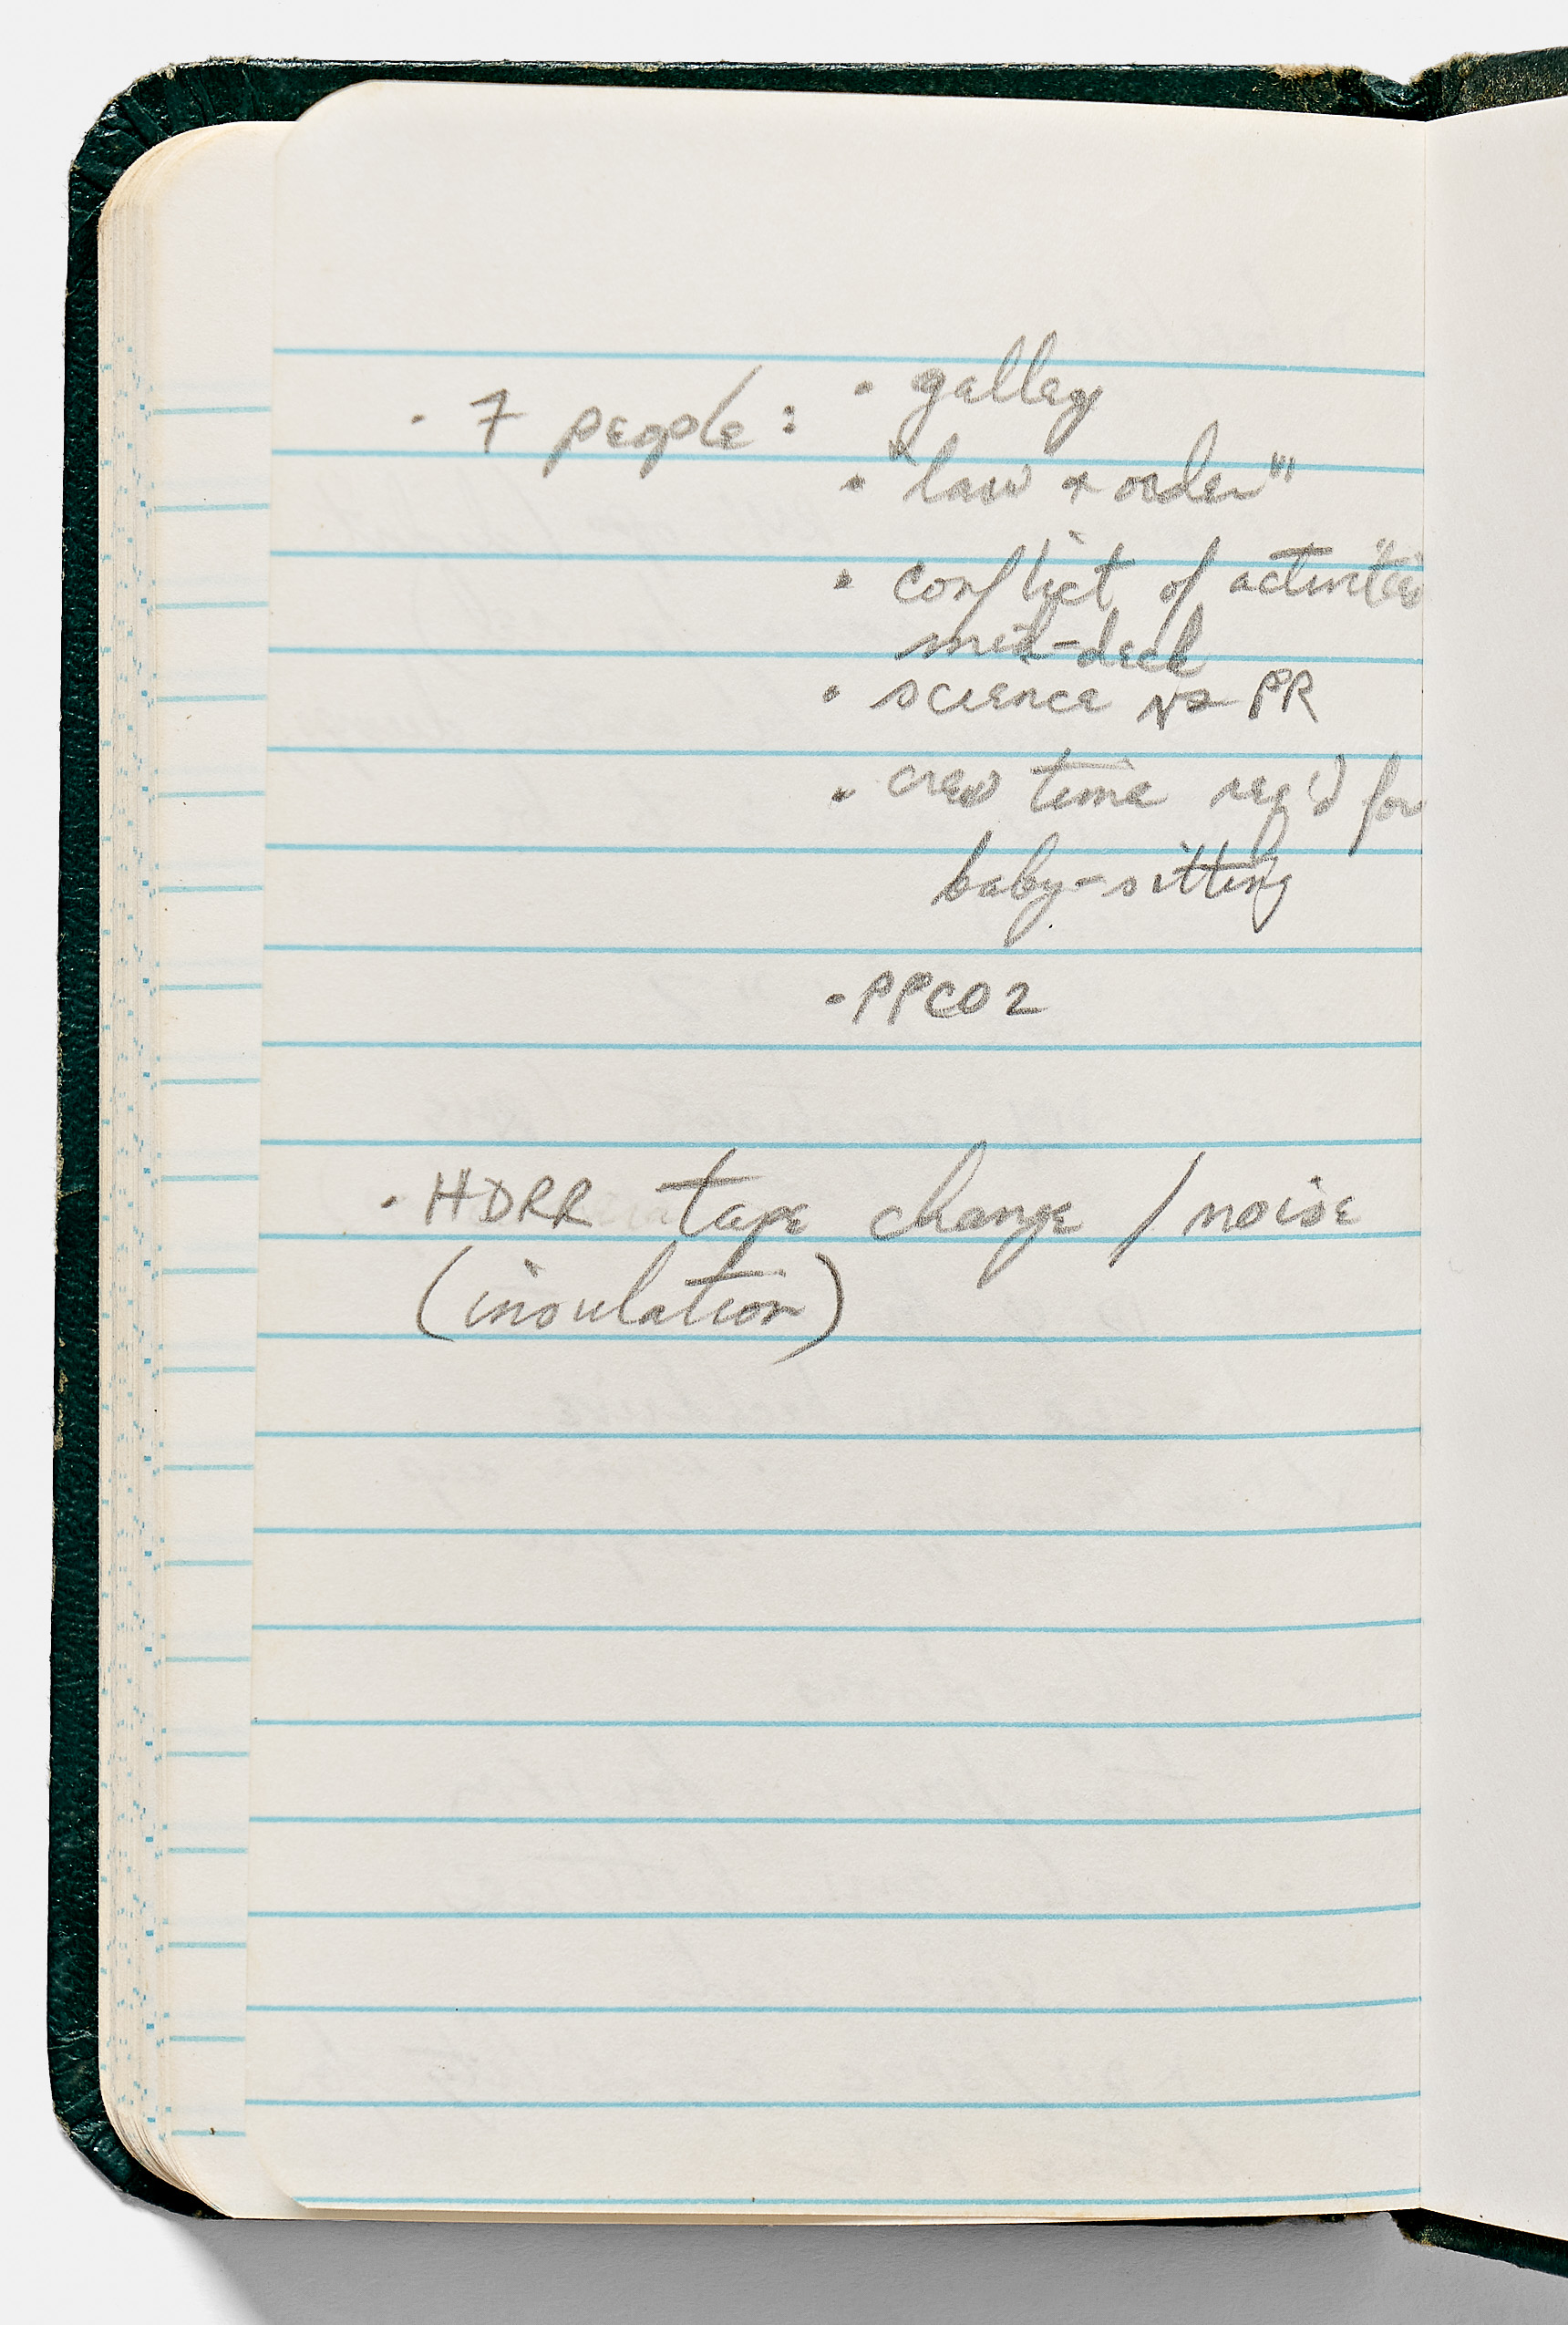 · 7 people : · galley
· "law + order"
· conflict of activities
mid-deck
· science vs PR
· crew time req'd for
baby-sitting
· PPCO2
· HDRR tape change / noise
(insulation)